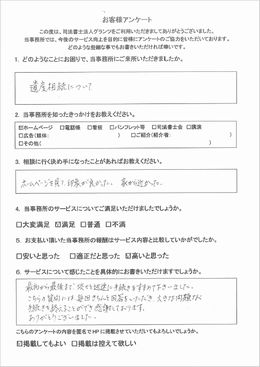 お客様アンケート
この度は、司法書士法人グランツをご利用いただきましてありがとうございました。
当事務所では、今後のサービス向上を目的に皆様にアンケートのご協力をいただいております。
どのような些細な事でもお書きいただければ幸いです。
1. どのようなことにお困りで、当事務所にご来所いただきましたか。
遺産相続について
2. 当事務所を知ったきっかけをお教えください。
☑ホームページ □電話帳 □看板 □パンフレット等 □司法書士会 □講演
□広告(媒体: ) □ご紹介(紹介者: )
□その他( )
3. 相談に行く決め手になったことがあればお教えください。
ホームページを見て印象が良かった。 家から近かった。
4. 当事務所のサービスについてご満足いただけましたでしょうか。
□大変満足 ☑満足 □普通 □不満
5. お支払い頂いた当事務所の報酬はサービス内容と比較していかがでしたか。
□安いと思った □適正だと思った ☑高いと思った
6. サービスについて感じたことを具体的にお書きいただけますでしょうか。
最初から最後まで
こちらの質問には毎回きちんと回答をいただき
手続きを終えることができ感謝しております。
ありがとうございました。
こちらのアンケートの内容を匿名でHPに掲載させていただいてもよろしいでしょうか。
☑掲載してもよい □掲載は控えて欲しい